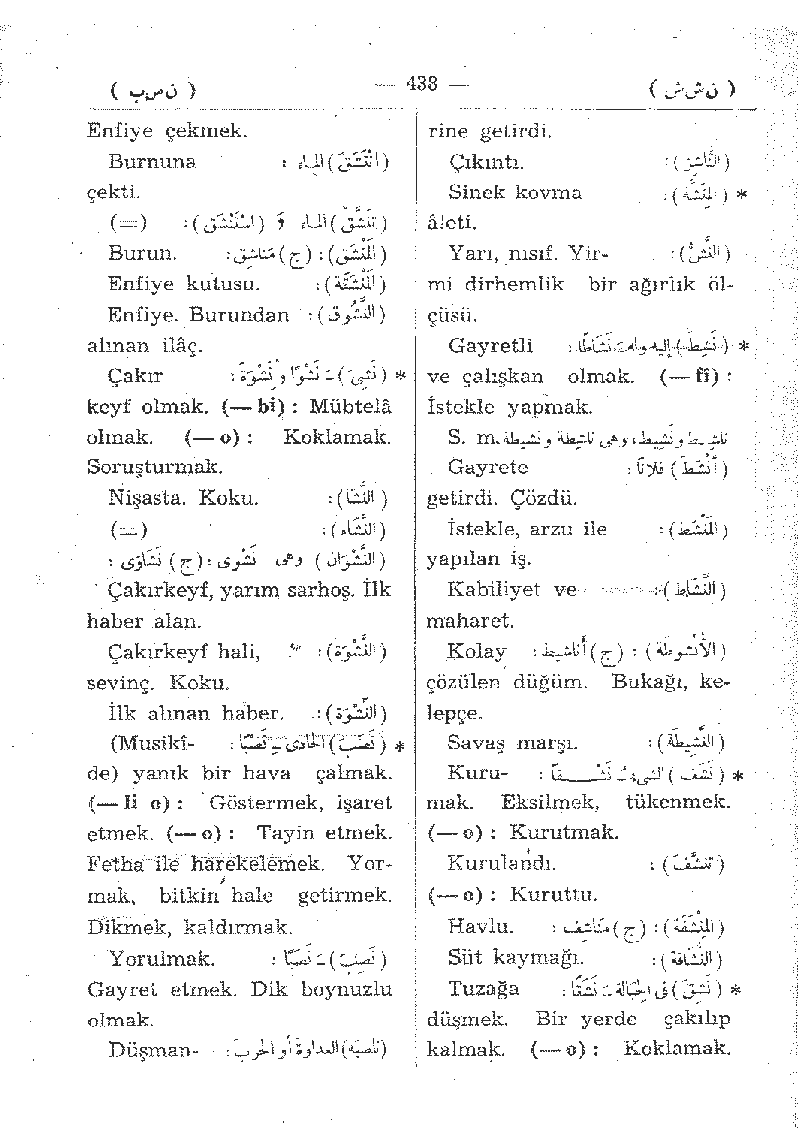 ( نشش ) — 438 — ( نصب )
rine getirdi.
Çıkıntı. :(النَّاشِز)
Sinek kovma :(المِنَشَّة) *
âleti.
Yarı, nısıf. Yir- :(النَّشّ)
mi dirhemlik bir ağırlık öl-
çüsü.
Gayretli : (نَشِطَ) إليه وله ـَ نَشَاطًا *
ve çalışkan olmak. (— fî) :
İstekle yapmak.
S. m. ناشِط ونَشِيط، وهى ناشِطة ونَشِيطة
Gayrete :(أَنْشَطَ) فلانًا
getirdi. Çözdü.
İstekle, arzu ile :(المَنْشَط)
yapılan iş.
Kabiliyet ve :(النَّشَاط)
maharet.
Kolay : (الأُنْشُوطَة) : (ج) أَناشِيط
çözülen düğüm. Bukağı, ke-
lepçe.
Savaş marşı. :(النَّشِيطَة)
Kuru- : (نَشِفَ) الشىءُ ـَ نَشَفًا *
mak. Eksilmek, tükenmek.
(— o) : Kurutmak.
Kurulandı. : (تَنَشَّفَ)
(— o) : Kuruttu.
Havlu. : (المِنْشَفَة) : (ج) مَناشِف
Süt kaymağı. :(النُّشَافَة)
Tuzağa : (نَشِقَ) فى الحِبَالة ـَ نَشَقًا *
düşmek. Bir yerde çakılıp
kalmak. (— o) : Koklamak.
Enfiye çekmek.
Burnuna : (انْتَشَقَ) الماء
çekti.
(=) :(تَنَشَّقَ) الماء و (اسْتَنْشَقَ)
Burun. : (المَنْشَق) : (ج) مَناشِق
Enfiye kutusu. :(المِنْشَقَة)
Enfiye. Burundan :(النَّشُوق)
alınan ilâç.
Çakır : (نَشِىَ) ـَ نَشْوًا ونَشْوَةً *
keyf olmak. (— bi) : Mübtelâ
olmak. (— o) : Koklamak.
Soruşturmak.
Nişasta. Koku. :(النَّشَا)
(=) :(النَّشَاء)
(النَّشْوَان) وهى نَشْوَى : (ج) نَشَاوَى :
Çakırkeyf, yarım sarhoş. İlk
haber alan.
Çakırkeyf hali, :(النَّشْوَة)
sevinç. Koku.
İlk alınan haber. :(النِّشْوَة)
(Musikî- : (نَصَبَ) الحادى ـِ نَصْبًا *
de) yanık bir hava çalmak.
(— li o) : Göstermek, işaret
etmek. (— o) : Tayin etmek.
Fetha ile harekelemek. Yor-
mak, bitkin hale getirmek.
Dikmek, kaldırmak.
Yorulmak. : (نَصِبَ) ـَ نَصَبًا
Gayret etmek. Dik boynuzlu
olmak.
Düşman- : (ناصَبَه) العداوة أو الحرب